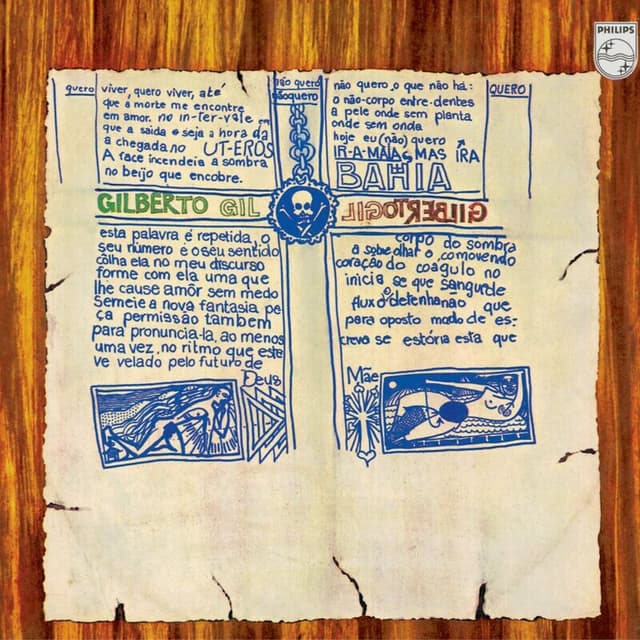 PHILIPS
quero
viver, quero viver, até
que a morte me encontre
em amor. no in-ter-vale em
que a saida e seja a hora da
a chegada no UT-EROS
A face incendeia a sombra
no beijo que encobre.
não quero
nãoquero
não quero o que não há:
o não-corpo entre-dentes
a pele onde sem planta
onde sem onda
hoje eu (não) quero
IR-A-MAIAS MAS IRA
BAHIA
QUERO
GILBERTO GIL
GILBERTO GIL
esta palavra é repetida, o
seu número é o seu sentido
côlha ela no meu discurso
forme com ela uma que
lhe cause amôr sem medo
Semeie a nova fantasia pe
ça permissão também
para pronuncia-la, ao menos
uma vez, no ritmo que este
ve velado pelo futuro de
Deus
corpo do sombra
a sobe olhar o, comovendo
coração do coagulo no
inicia se que sangue de
fluxo detenha não que
para oposto modo de es-
crevo se estória esta que
Mãe